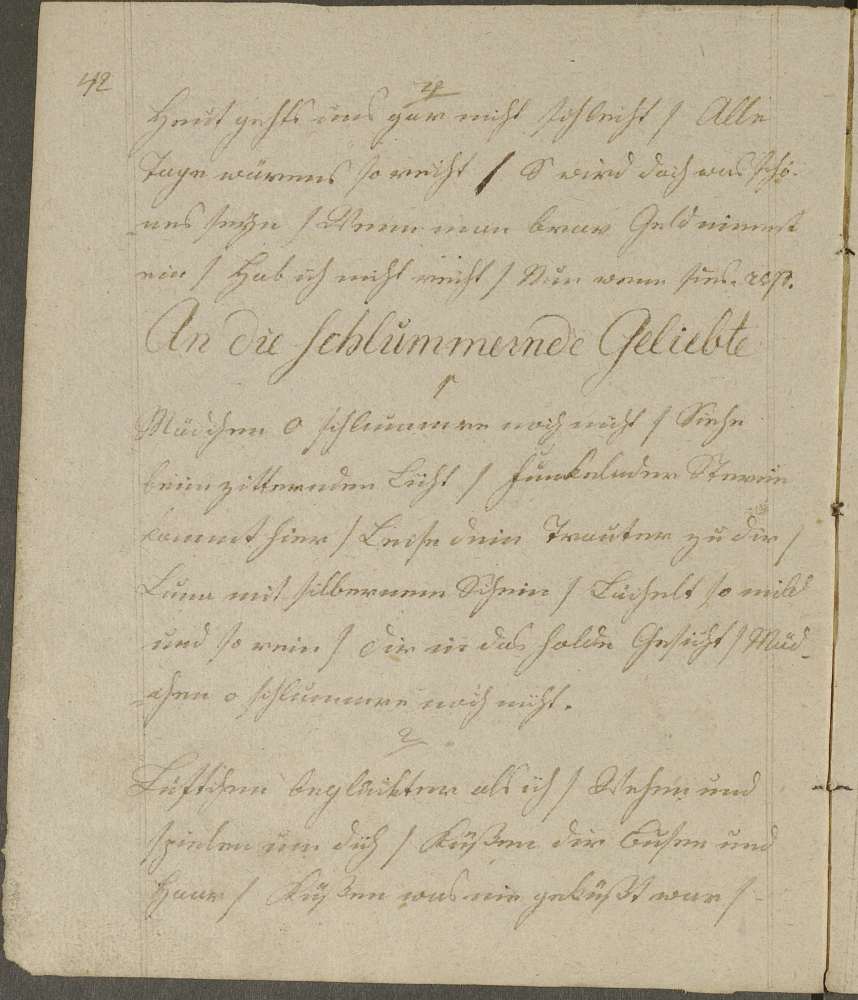 42
4
Heut gehts uns gar nicht schlecht / Alle
Tage wärens so recht / S wird doch was schö-
nes seyn / Wenn man brav Geld nimmt
ein / Hab ich nicht recht / Nun wenn
An die schlummernde Geliebte
1
Mädchen o schlummre noch nicht / Siehe
beim zitternden Licht / funkelnder Sternn
kommt hier / Leise dein Trauter zu dir /
Luna mit silbernem Schein / Lächelt so mild
und so rein / dir in das holde Gesicht / Mäd-
chen o schlummre noch nicht.
2
Lüftchen beglükter als ich / Wehen und
spielen um dich / Küßen dir Busen und
Haar / Küßen was nie geküßt war /